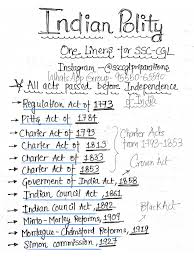 Indian Polity
One Liners for SSC-CGL
Instagram - @sscglpreparations
WhatsApp Group -
* All acts passed before Independence of India
→ Regulation Act of 1773
→ Pitts Act of 1784
→ Charter Act of 1793
→ Charter Act of 1813
→ Charter Act of 1833
→ Charter Act of 1853
Charter Acts from 1793-1853
→ Government of India Act, 1858
Crown Act
→ Indian Council Act, 1861
→ Indian Council Act, 1892
→ Minto-Morley Reforms, 1909
Black Act
→ Montague-Chelmsford Reforms, 1919
→ Simon commission, 1927